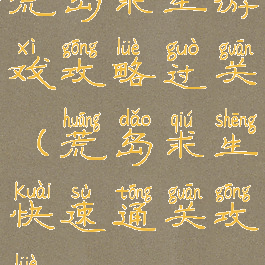 荒岛求生游
xì gōng lüè guò guān
戏攻略过关
huāng dǎo qiú shēng
(荒岛求生
kuài sù tōng guān gōng
快速通关攻
lüè